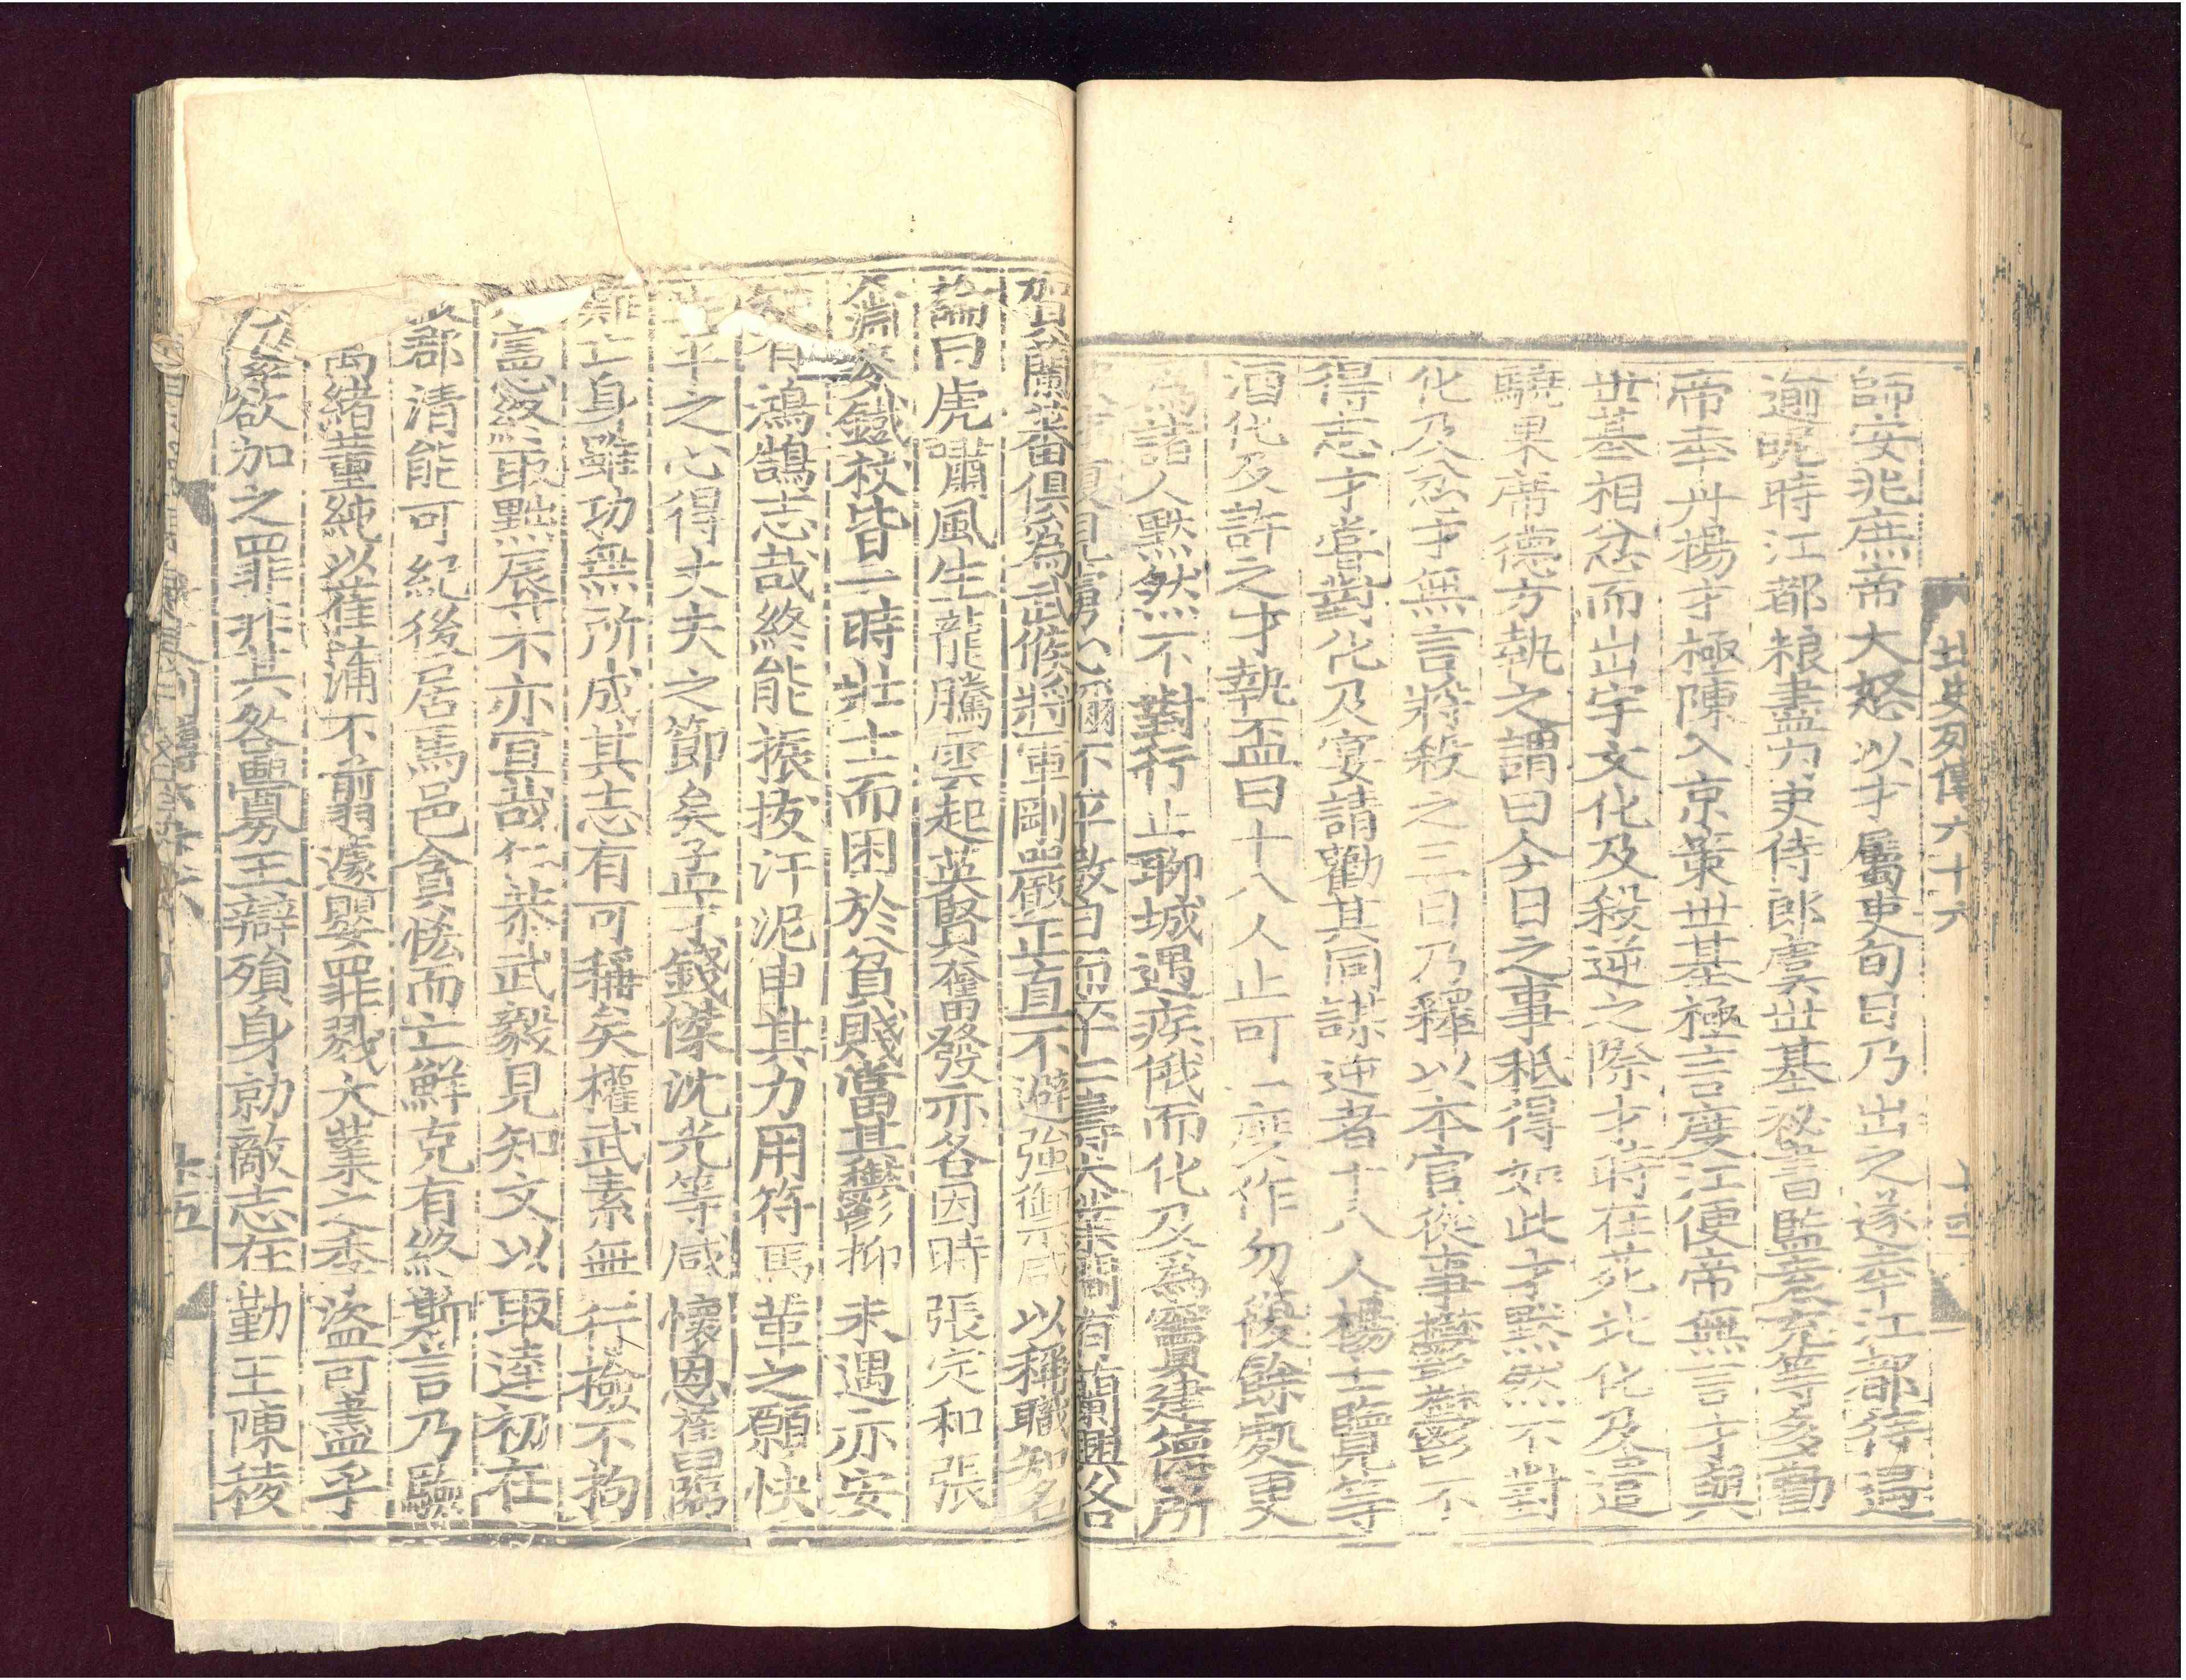 北史列傳六十六
十四
師安兆庶帝大怒以才屬吏旬日乃出之遂幸江都待遇
逾昵時江都粮盡內史侍郎虞世基秘書監袁充等多勸
帝幸丹楊才極陳入京策世基極言度江便帝無言才與
世基相忿而出宇文化及殺逆之際才時在苑北化及遣
驍果席德方執之謂曰今日之事秖得如此才默然不對
化及忿才無言將殺之三日乃釋以本官從事鬱鬱不
得志才嘗對化及宴請勸其同謀逆者十八人楊士覽等
酒化及許之才執盃曰十八人止可一度作勿復餘處更
為諸人默然不對行止聊城遇疾俄而化及為竇建德所
不平數日而卒仁壽大業間有蘭興洛
賀蘭蕃俱為武候將軍剛嚴正直不避強禦咸以稱職知名
論曰虎嘯風生龍騰雲起英賢奮發亦各因時張定和張
奫麥鐵杖皆一時壯士而困於貧賤當其鬱抑未遇亦安
有鴻鵠志哉終能振拔汙泥申其力用符馬革之願快
生平之心得丈夫之節矣孟才錢傑沈光等咸懷恩舊臨
難亡身雖功無所成其志有可稱矣權武素無行檢不拘
憲終取黜辱不亦宜哉仁恭武毅見知文以取達初在
郡清能可紀後居馬邑貪恡而亡鮮克有終斯言乃驗
緒董純以萑蒲不翦遽嬰罪戮大業之季盜可盡乎
欲加之罪非其咎舋王辯殞身勍敵志在勤王陳稜
十五